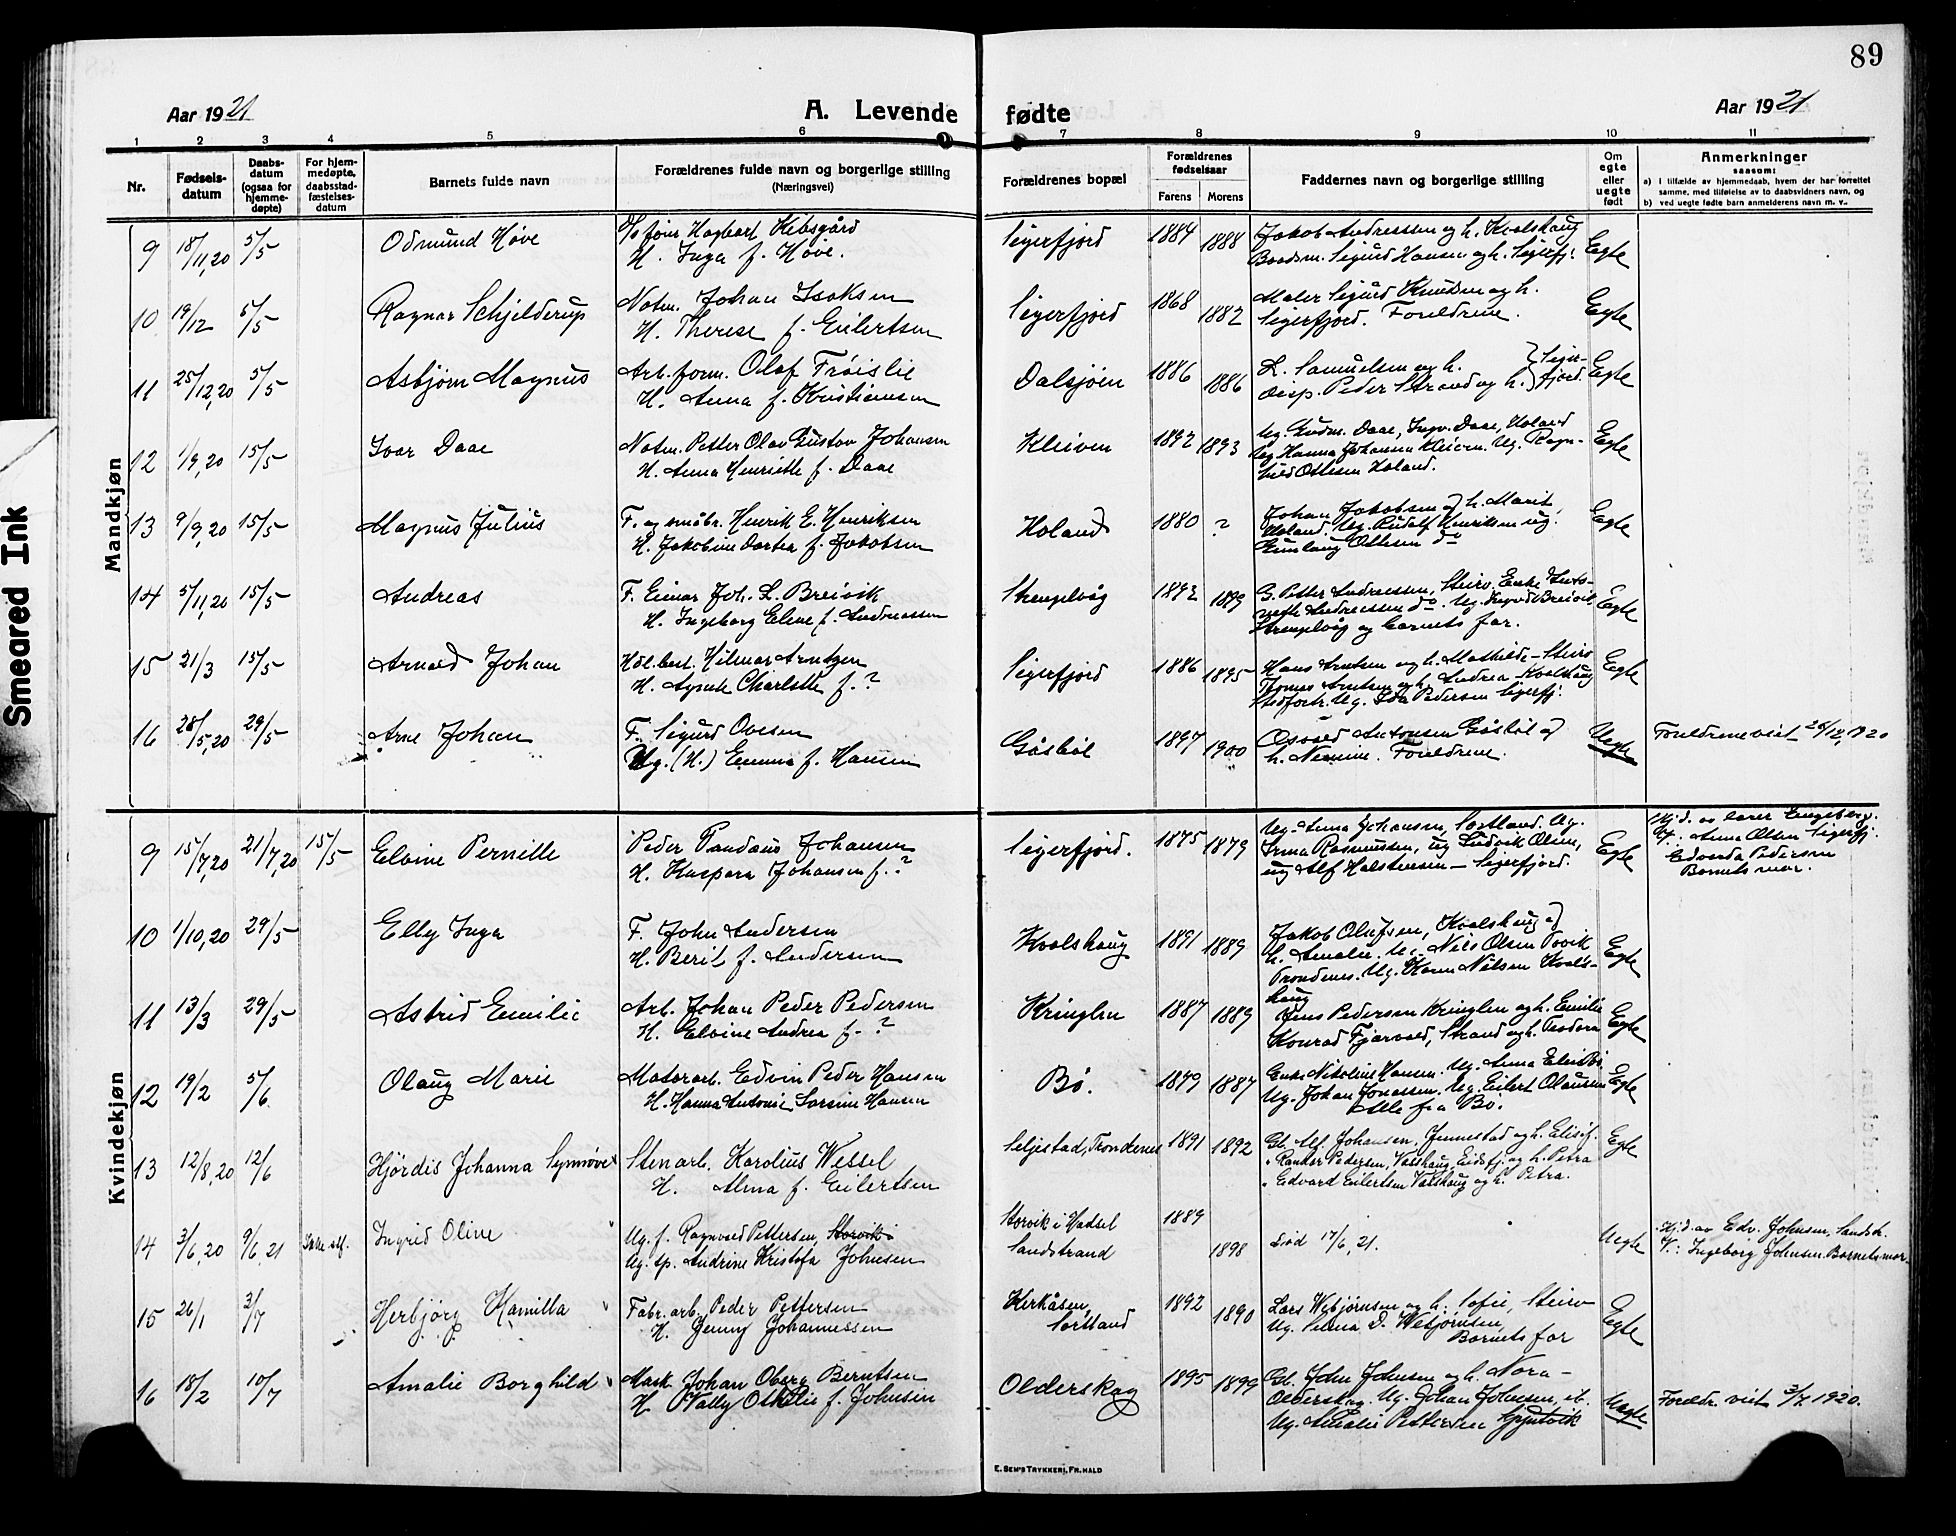 89
Aar 1921
A. Levende
fødte
Aar 1921
1 2 3 4 5 6 7 8 9 10 11
Nr.
Fødsels-
datum
Daabs-
datum
(ogsaa for
hjemme-
døpte)
For hjem-
medøpte,
daabsstad-
fæstelses-
datum
Barnets fulde navn
Forældrenes fulde navn og borgerlige stilling
(Næringsvei)
Forældrenes bopæl
Forældrenes
fødselsaar
Farens Morens
Faddernes navn og borgerlige stilling
Om
egte
eller
uegte
født
Anmerkninger
saasom:
a) I tilfælde av hjemmedaab, hvem der har forrettet
samme, med tilføielse av to daabsvidners navn, og
b) ved uegte fødte barn anmelderens navn m. v..
Smeared Ink
Mandkjøn
9 18/11,20 5/5 Odmund Høve Hagbart Kibsgård Sigerfjord 1884 1888 Jakob Andreassen og h. Kvalshaug Egte
H. Inga f. Høve. Baadsm. Sigurd Hansen og h. Sigerfj.
10 19/12 5/5 Ragnar Schjelderup Notm. Johan Isaksen Sigerfjord 1868 1882 Maler Sigurd Knudsen og h. Egte
H. Therese f. Eilertsen Sigerfjord. Foreldrene.
11 25/12,20 5/5 Asbjørn Magnus Arb. form. Olaf Frøislie Dalsjöen 1886 1886 L. Samuelsen og h. Siger- Egte
H. Anna f. Kristiansen Disp. Peder Strand og h. fjord.
12 1/9,20 15/5 Ivar Daae Notm. Petter Olav Gustav Johansen Kleiven 1892 1893 Ug. Gudm. Daae, Ingv. Daae, Holand Egte
H. Anna Henriette f. Daae Ug Hanna Johansen Kleiven. Ug. Ragn-
hild Ottesen Holand.
13 9/9,20 15/5 Magnus Julius F. og småbr. Henrik E. Henriksen Holand 1880 ? Johan Jakobsen og h. Marit, Egte
H. Jakobine Dortea f. Jakobsen Holand. Ug. Rudolf Henriksen ug.
Gunlaug Ottesen do
14 5/11,20 15/5 Andreas F. Einar Joh. L. Breivik Strengelvåg 1893 1899 G. Petter Andreassen, Steiro. Enke Egte
H. Ingeborg Eline f. Andreassen Andreassen do. Ug. Breivik
Strengelvåg og barnets far.
15 21/3 15/5 Arnold Johan Hilmar Arntzen Sigerfjord 1886 1895 Hans Arntsen og h. Mathilde - Steiro Egte
H. Agnete Charlotte f. ? Thomas Arntsen og h. Andrea - Kvalshaug
Ug. Ida Pedersen Sigerfj.
16 28/5,20 29/5 Arne Johan F. Sigurd Ovesen Gåsbøl 1897 1900 Osvald Antonsen Gåsbøl og Uegte Foreldrene viet 26/12,1920
Ug. (H.) Emma f. Hansen h. Nennine. Foreldrene.
Kvindekjøn
9 15/7,20 21/7,20 15/5 Elvine Pernille Peder Pandæus Johansen Sigerfjord. 1875 1879 Ug. Anna Johansen, Sortland. Ug. Egte Hj.d. av lærer Engeberg.
H. Kaspara Johansen f. ? Irma Rasmussen, ug Ludvik Olsen, V. Anna Olsen Sigerfj.
ug Alf Halstensen - Sigerfjord. Edvarda Pedersen
Barnets mor.
10 1/10,20 29/5 Elly Inga F. John Andersen Kvalshaug 1891 1889 Jakob Olufsen, Kvalshaug og Egte
H. Berit f. Andersen h. Amalie. Ug. Nils Olsen
Trondenes. Ug. Hanna Nilsen Kvals-
haug
11 13/3 29/5 Astrid Emilie Arb. Johan Peder Pedersen Kringlen 1887 1889 Jens Pedersen Kringlen og h. Emilie Egte
H. Elvine Andrea f. ? Konrad Fjærvold, Strand og h. Teodora
12 19/2 5/6 Olaug Marie Motorarb. Edvin Peder Hansen Bø. 1879 1887 Enke Nikoline Hansen. Ug. Anna Egte
H. Hanna Antonie Sorsine Hansen Ug. Johan Jonassen. Ug. Eilert Olaussen
Alle fra Bø.
13 12/8,20 12/6 Hjördis Johanna Synnøve Stenarb. Karolius Wessel Seljestad, Trondenes 1891 1892 Gb. Alf. Johansen, Jennestad og h. Elisif. Egte
H. Alma f. Eilertsen Pedersen, Valshaug, Eidsfj. og h. Petra
" Edvard Eilertsen Valshaug og h. Petra.
14 3/6,20 9/6,21 Ingrid Oline Ug. f. Ragnvald Pettersen, Storvik Storvik i Hadsel 1889 Død 17/6,21. Uegte Hj.d. av Edv. Johnsen, Sandstr.
Ug. sp. Andrine Kristofa Johnsen Sandstrand 1898 V.: Ingeborg Johnsen. Barnets mor.
15 26/1 3/7 Herbjørg Kamilla Fabr. arb. Peder Pettersen Kirkåsen, 1892 1890 Lars Webjørnsen og h. Sofie, Steiro Egte
H. Jenny Johannessen Sortland Ug. Selma D. Webjørnsen,
Barnets far
16 18/2 10/7 Amalie Borghild Mask. Johan Oberg Berntsen Olderskag 1895 1899 Gb. John Johnsen og h. Nora - Uegte Foreldr. viet 3/7 1920.
H Nally Otelie f. Johnsen Olderskag. Ug. Johan Johnsen, st.
Ug. Amalie Pettersen
E. SEM'S TRYKKERI, FR.HALD